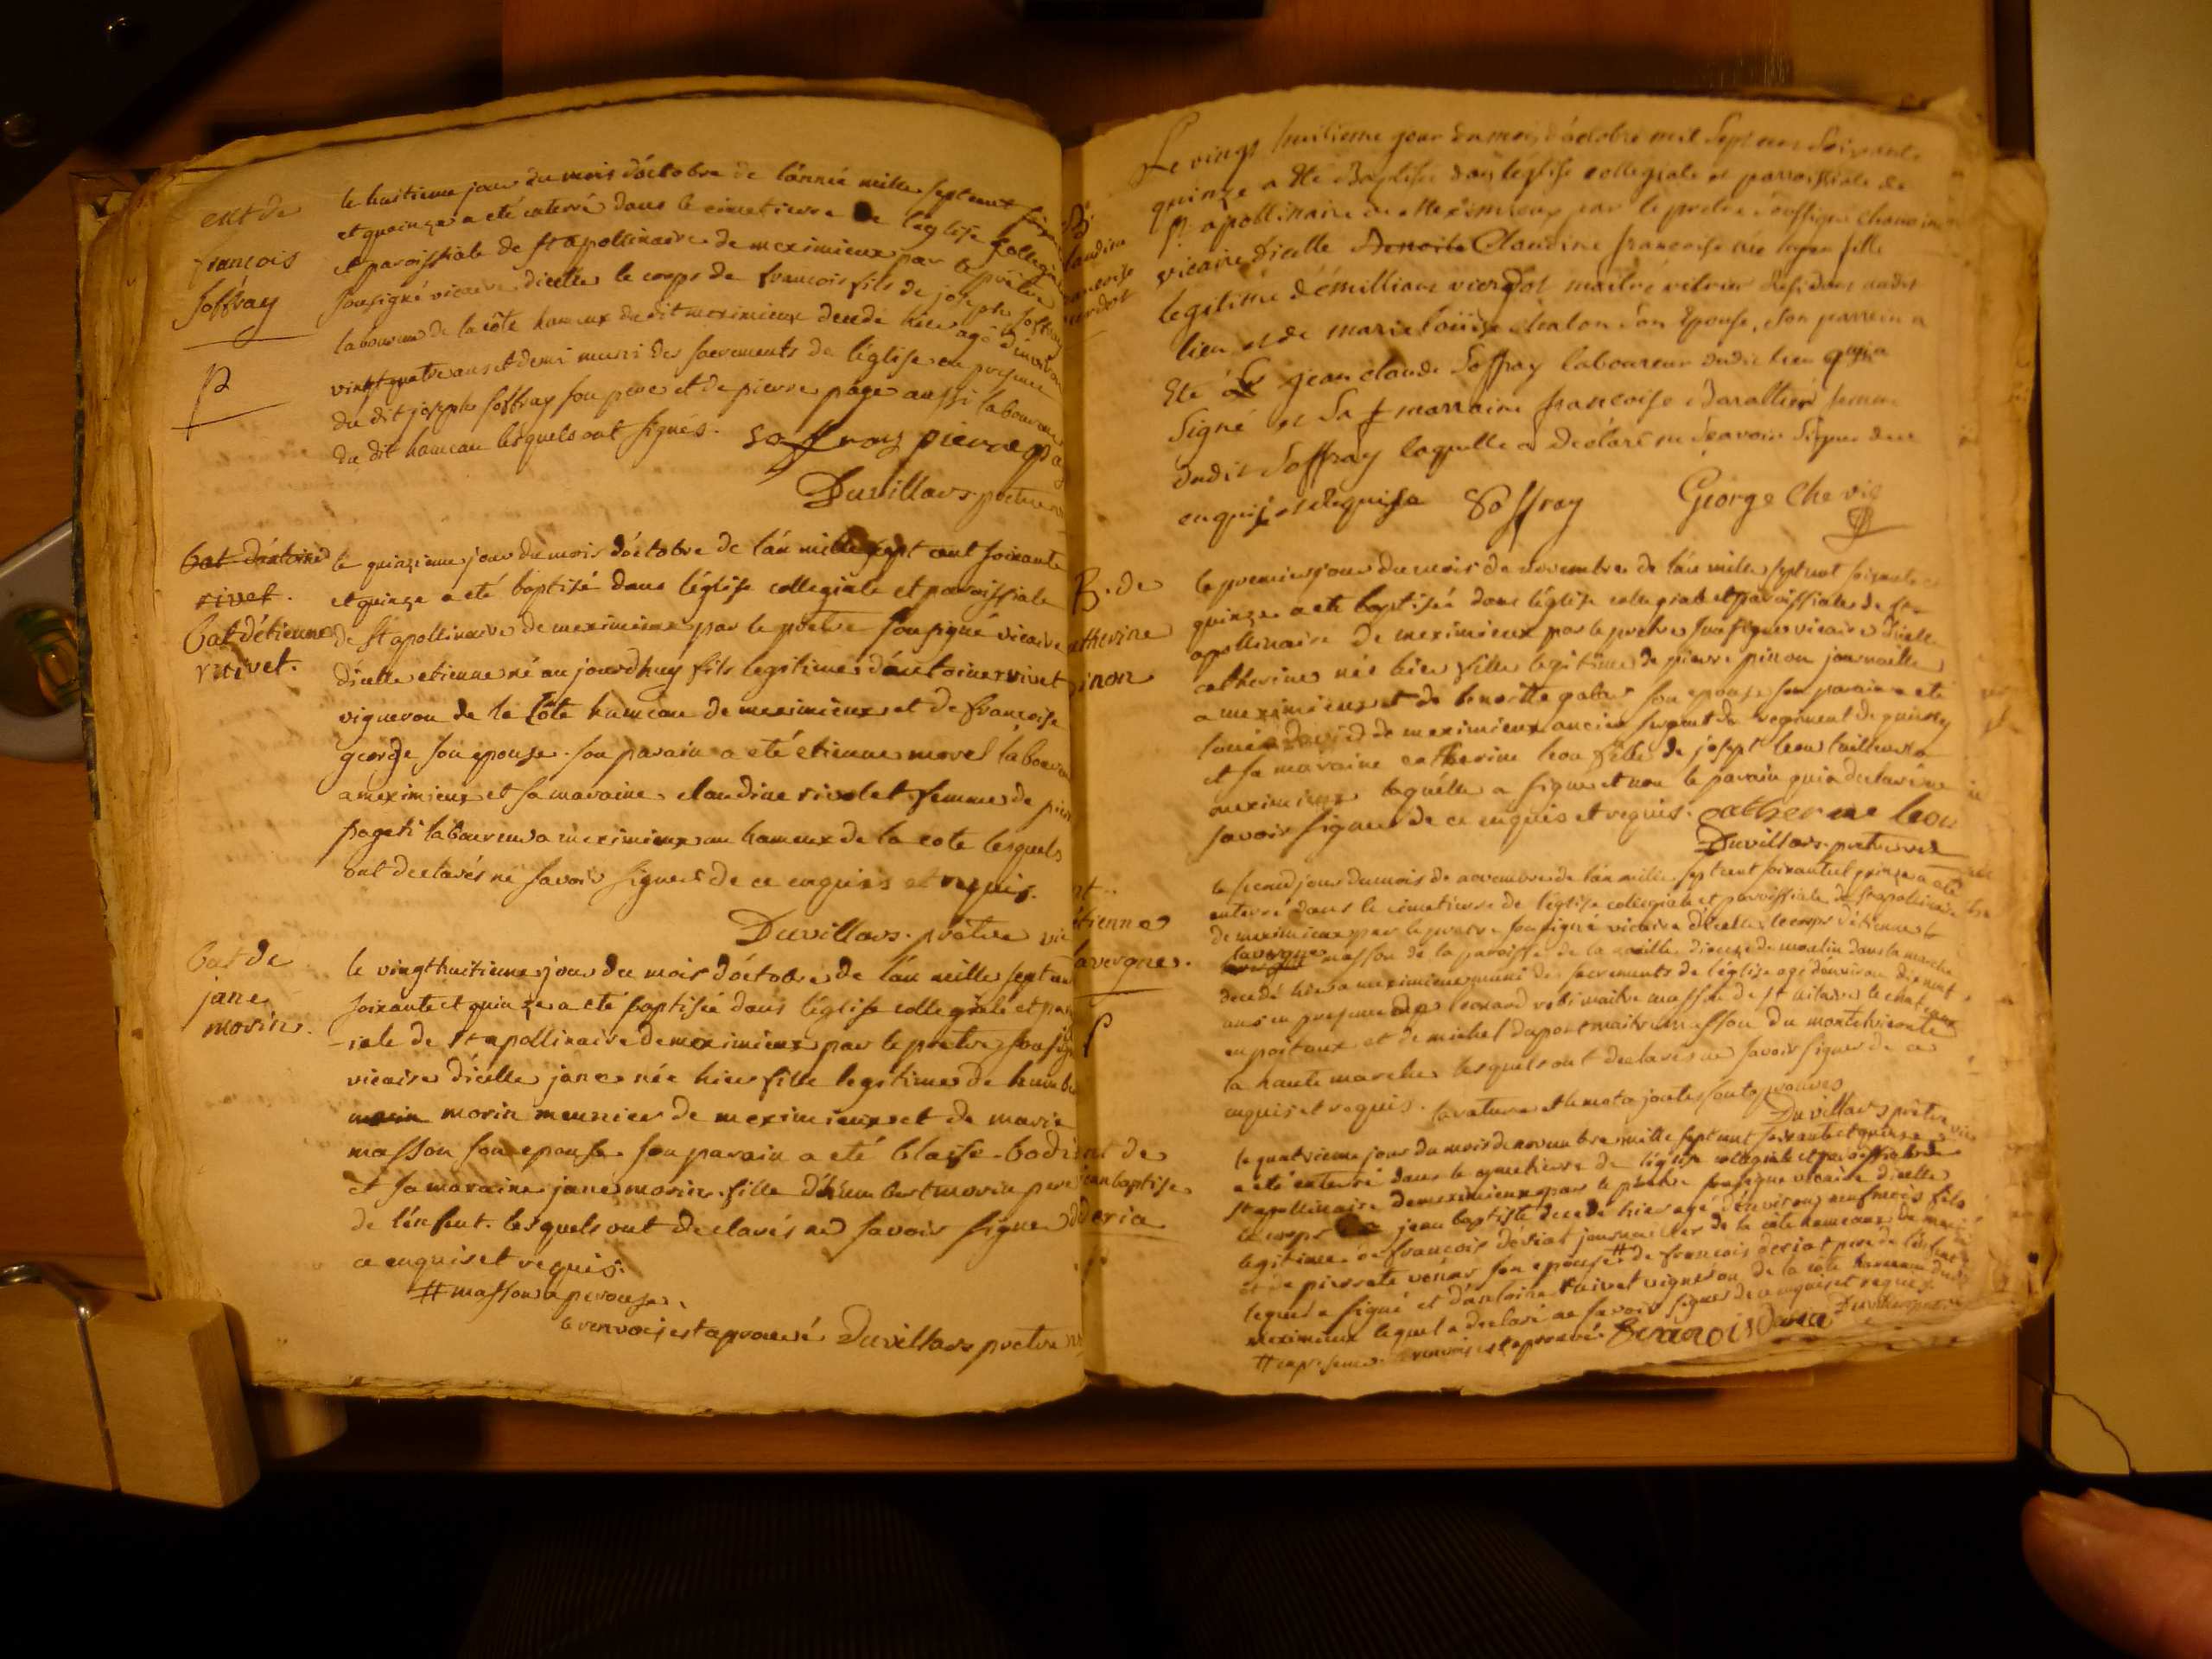 ent de
françois
soffray
p
le huitieme jour du mois d'octobre de l'année mille sept cent
et quinze a eté enterré dans le cimetierre de l'eglise collegiale
et paroissiale de st apollinaire de meximieux par le prêtre
sousigné vicaire d'icelle le corps de francois fils de joseph soffray
laboureur de la côte hameux du dit meximieux decedé hier agé d'environ
vingt quatre ans et demi muni des sacrements de l'église en presence
du dit joseph soffray son pere et de pierre page aussi laboureur
du dit hameau lesquels ont signés. soffray pierre pa
Duvillars prêtre
bat d'antoine
rivet.
bat d'étienne
ruivet.
le quinzieme jour du mois d'octobre de l'an mille sept cent soixante
et quinze a eté baptisé dans l'église collegiale et paroissiale
de st apollinaire de meximieux par le prêtre sousigné vicaire
d'icelle etienne né au jourd'huy fils legitime d'antoine rivet
vigneron de la côte hameau de meximieux et de françoise
george son epouse. son parain a eté etienne morel laboureur
a meximieux et sa maraine claudine rivolet femme de pierre
pageti laboureur a meximieux au hameux de la cote lesquels
ont declarés ne savoir signer de ce enquis et requis.
Duvillars. prêtre vic
bat de
jane
morin.
le vingt huitieme jour du mois d'octobre de l'an mille sept cent
soixante et quinze a eté baptisée dans l'église collegiale et pa
-iale de st apollinaire de meximieux par le prêtre sousig
vicaire d'icelle jane née hier fille legitime de humb
morin meunier de meximieux et de marie
masson son epouse son parain a eté blaise bodi
et sa maraine jane morin fille d'humbert morin pere
de l'enfent. lesquels ont declarés ne savoir signer d
ce enquis et requis.
# masson a perouse.
le renvoi est aprouvé Duvillars prêtre
B
laudine
rancoise
Le vingt huitieme jour du mois d'octobre mil sept cens soixante
quinze a eté Baptisée dans l'église collegiale et parroissiale de
st apollinaire de Meximieux par le pretre soussigné chanoine
vicaire d'icelle Benoite Claudine francoise née hyer fille
legitime d'émilliane vierdot maitre vitrier résidant audit
lieu et de marie loüise chalon son Epouse, son parrein a
Eté sr jean claude soffray laboureur dudit lieu qui a
signé et sa marraine francoise Barallier femme
dudit soffray laquelle a declaré ne sçavoir signer de ce
enquise et requise Soffray George Che vic
B. de
atherine
inon
le premier jour du mois de novembre de l'an mille sept cent soixante et
quinze a eté baptisée dans l'église collegiale et paroissiale de st
apollinaire de meximieux par le prêtre sousigné vicaire d'icelle
catherine née hier fille legitime de pierre pinon journaillier
a meximieux et de benoitte son epouse son parain a eté
louis david de meximieux ancien sergent du regiment de
et sa maraine catherine leou fille de joseph leou tailleur a
meximieux laquelle a signé et non le parain qui a declaré ne
savoir signer de ce enquis et requis. catherine leou
Duvillars. prêtre vic
nt..
étienne
lavergne.
f
le second jour du mois de novembre de l'an mille sept cent soixante et quinze a eté
enterré dans le cimetierre de l'église collegiale et paroissiale de st apollinaire
de meximieux par le prêtre sousigné vicaire d'icelle le corps d'étienne
lavergne masson de la paroisse de la dioceze de moulin dans la marche
decedé hier a meximieux muni des sacrements de l'église agé d'environ dix neuf
ans en presence de leonard maitre masson de st hilaire le chateau
en poitoux et de michel dupont maitre masson du
la haute marche lesquels ont declarés ne savoir signer de ce
enquis et requis. la rature et le mot ajouté sont aprouvés
Duvillars prêtre vic
ent de
jean baptiste
deria
le quatrieme jour du mois de novembre mille sept cent soixante et quinze
a eté enterré dans le cymetierre de l'église collegiale et paroissiale de
st apollinaire de meximieux par le prêtre sousigné vicaire d'icelle
le corps jean baptiste decedé hier agé d'environ neuf mois fils
legitime de francois deriat journallier de la cote hameaux de mexi
et de pierrete son epouse # de francois deriat pere de l'enfent
lequel a signé et d'antoine ruivet vigneron de la cote hameau dudit
meximieux lequel a declaré ne savoir signer de ce enquis et requis
# en presence. le renvoi est aprouvé. francois daria Duvillars prêtre